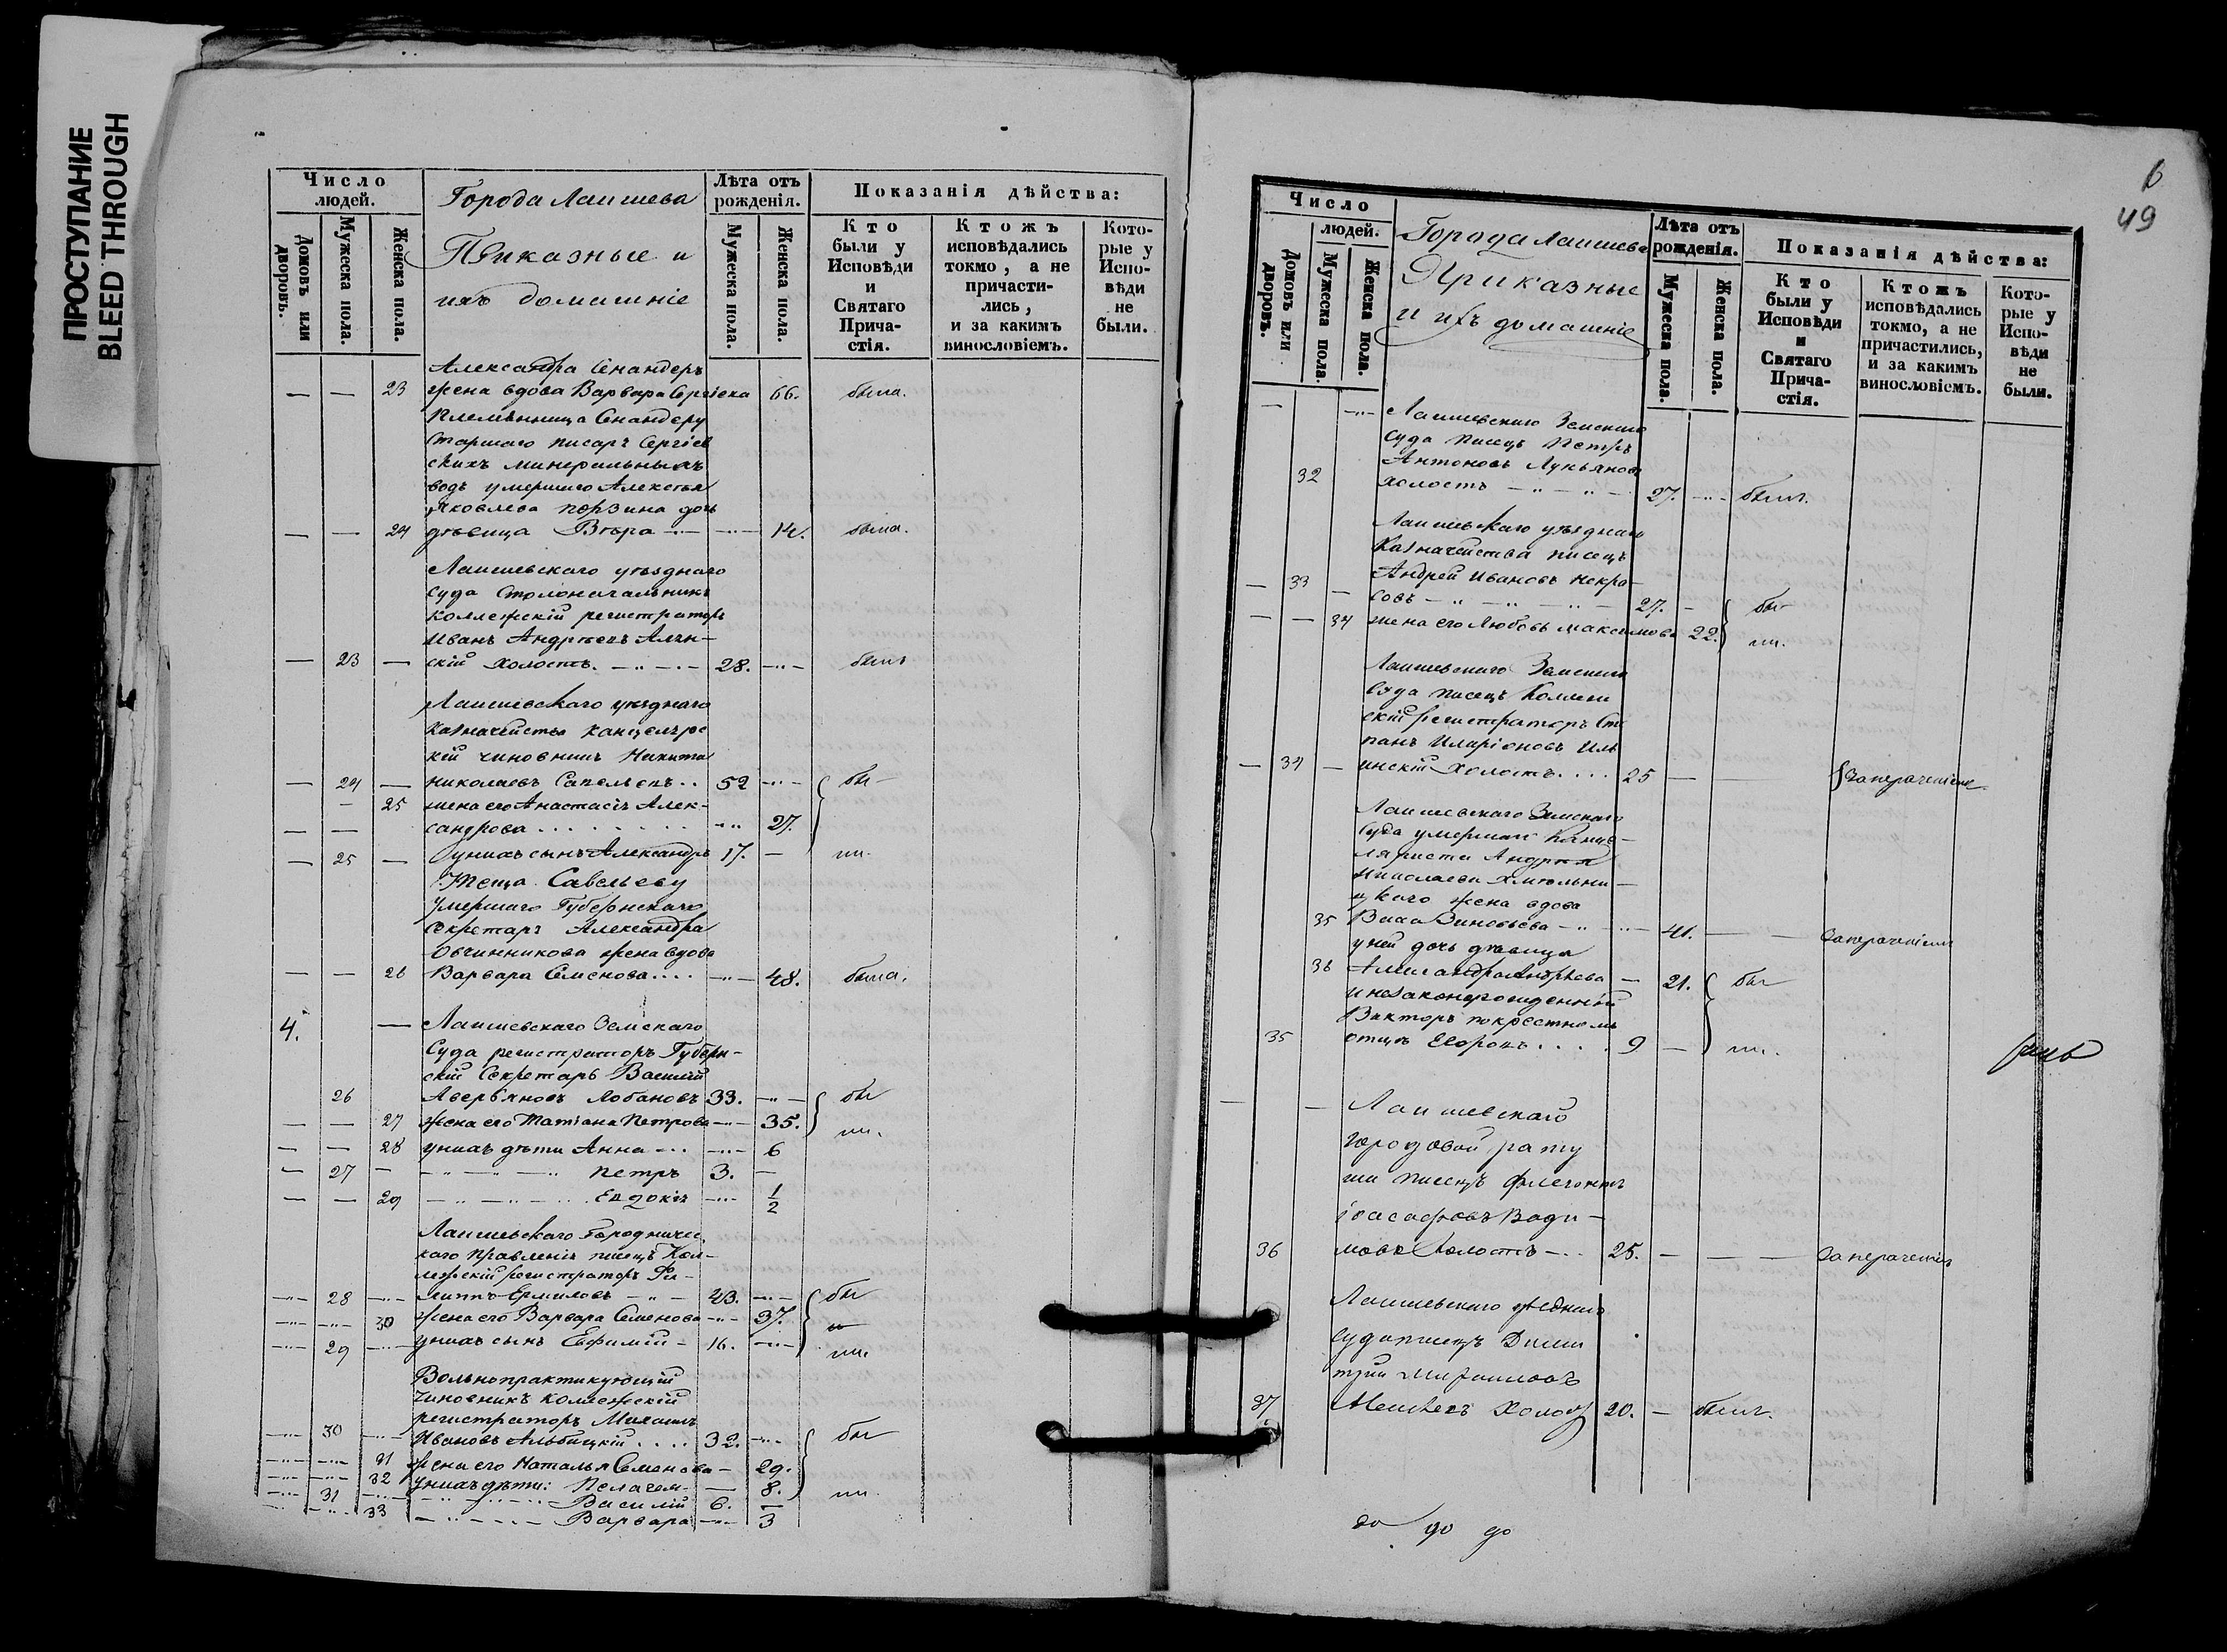 ПРОСТУПАНИЕ
BLEED THROUGH
Число людей.
Домовъ или дворовъ.
Мужеска пола.
Женска пола.
Города Лаишева
Приказные и
ихъ домашніе
Лѣта отъ рожденія.
Мужеска пола.
Женска пола.
Показанія дѣйства:
Кто были у Исповѣди и Святаго Причастія.
Ктожъ исповѣдались токмо, а не причастились, и за какимъ винословіемъ.
Которые у Исповѣди не были.
Александра
— — 23 жена вдова Варвара Сергіева 66. была.
Племянница
Старшаго писаря Сергіев
скихъ минеральныхъ
водъ умершаго Алексѣя
Яковлева дочь
— — 24 дѣвица Вѣра 14. была.
Лаишевскаго уѣзднаго
Суда Столоначальникъ
коллежскій регистраторъ
Иванъ Андрѣевъ
— 23 — скій холостъ. 28. былъ
Лаишевскаго уѣзднаго
Казначейства канцелярс
кій чиновникъ Никита
— 24 — Николаевъ Савельевъ 52 бы
— 25 жена его Анастасія Алек-
— — сандрова 27.
— 25 — у нихъ сынъ Александръ 17. — ли.
Теща Савельеву
Умершаго Губернскаго
Секретаря Александра
Овчинникова жена вдова
— — 26 Варвара Семенова 48. была.
4. — Лаишевскаго Земскаго
Суда регистраторъ Губерн-
скій Секретарь Василій
26 Аверьяновъ Лобановъ 33. бы
— — 27 жена его Татіана Петрова 35. ли.
— — 28 у нихъ дѣти Анна 6
— 27 — Петръ 3. —
— — 29 Евдокія 1/2
Лаишевскаго Городничес
каго Правленія писецъ Кол-
лежскій регистраторъ Фи-
28 липпъ Ермиловъ 43. бы
30 жена его Варвара Семенова 37.
29 у нихъ сынъ Евфимій 16. ли.
Вольнопрактикующій
чиновникъ коллежскій
регистраторъ Михаилъ
30 Ивановъ Альбицкій 32. бы
31 жена его Наталья Семенова 29.
32 у нихъ дѣти: Пелагея 8. ли.
31 Василій 6. —
33 Варвара 3
49
Число людей.
Домовъ или дворовъ.
Мужеска пола.
Женска пола.
Города Лаишева
Приказные
и ихъ домашніе
Лѣта отъ рожденія.
Мужеска пола.
Женска пола.
Показанія дѣйства:
Кто были у Исповѣди и Святаго Причастія.
Ктожъ исповѣдались токмо, а не причастились, и за какимъ винословіемъ.
Которые у Исповѣди не были.
Лаишевскаго Земскаго
Суда писецъ Петръ
Антоновъ Лукьяновъ
32 холостъ 27. былъ.
Лаишевскаго уѣзднаго
Казначейства писецъ
— 33 — Андрей Ивановъ Некра-
совъ 27. — бы
— — 34 жена его Любовь Максимова 22. ли.
Лаишевскаго Земскаго
Суда писецъ Коллеж
скій регистраторъ Сте
панъ Иларіоновъ Иль
— 34 — инскій холостъ 25 — —
Лаишевскаго Земскаго
Суда умершаго Канце-
ляриста Андрея
Николаева Хмельни-
цкаго жена вдова
35 Васса Зиновьева 41. — —
у ней дочь дѣвица
36 Александра Андрѣева — 21. бы
и незаконорожденный
Викторъ по крестномъ
35 отцѣ Егоровъ 9 — ли.
— — Лаишевскаго
городовой рату
ши писецъ Флегонтъ
Іоасафовъ
36 холостъ 25. — — —
Лаишевскаго уѣзднаго
Суда писецъ Дими
трій
37 холост 20. — былъ.